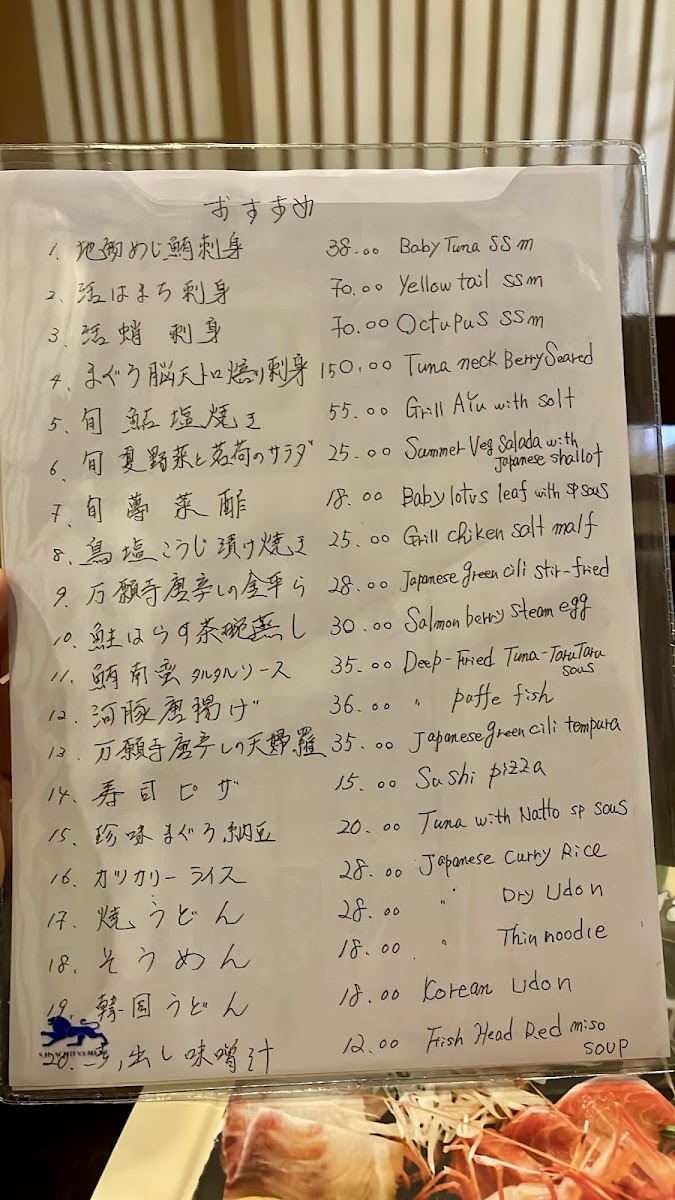 おすすめ
1. 地物めじ鮪刺身 38.00 Baby Tuna SSm
2. 活はまち刺身 70.00 Yellow tail SSm
3. 活蛸 刺身 70.00 Octupus SSm
4. まぐろ脳天トロ焙り刺身 150.00 Tuna neck Berry Seared
5. 旬 鮎塩焼き 55.00 Grill Ayu with solt
6. 旬 夏野菜と茗荷のサラダ 25.00 Summer Veg Salada with
Japanese shallot
7. 旬 蓴菜酢 18.00 Baby lotus leaf with SP sous
8. 鳥塩こうじ漬け焼き 25.00 Grill chiken salt malf
9. 万願寺唐辛しの金平ら 28.00 Japanese green cili stir-fried
10. 鮭はらす茶碗蒸し 30.00 Salmon berry steam egg
11. 鮪南蛮タルタルソース 35.00 Deep-Fried Tuna-TaruTaru
sous
12. 河豚唐揚げ 36.00 " puffe fish
13. 万願寺唐辛しの天婦羅 35.00 Japanese green cili tempura
14. 寿司ピザ 15.00 Sushi pizza
15. 珍味まぐろ納豆 20.00 Tuna with Natto sp sous
16. カツカリーライス 28.00 Japanese Curry Rice
17. 焼うどん 28.00 " Dry Udon
18. そうめん 18.00 " Thin noodle
19. 韓国うどん 18.00 Korean Udon
20. 出し味噌汁 12.00 Fish Head Red miso
soup